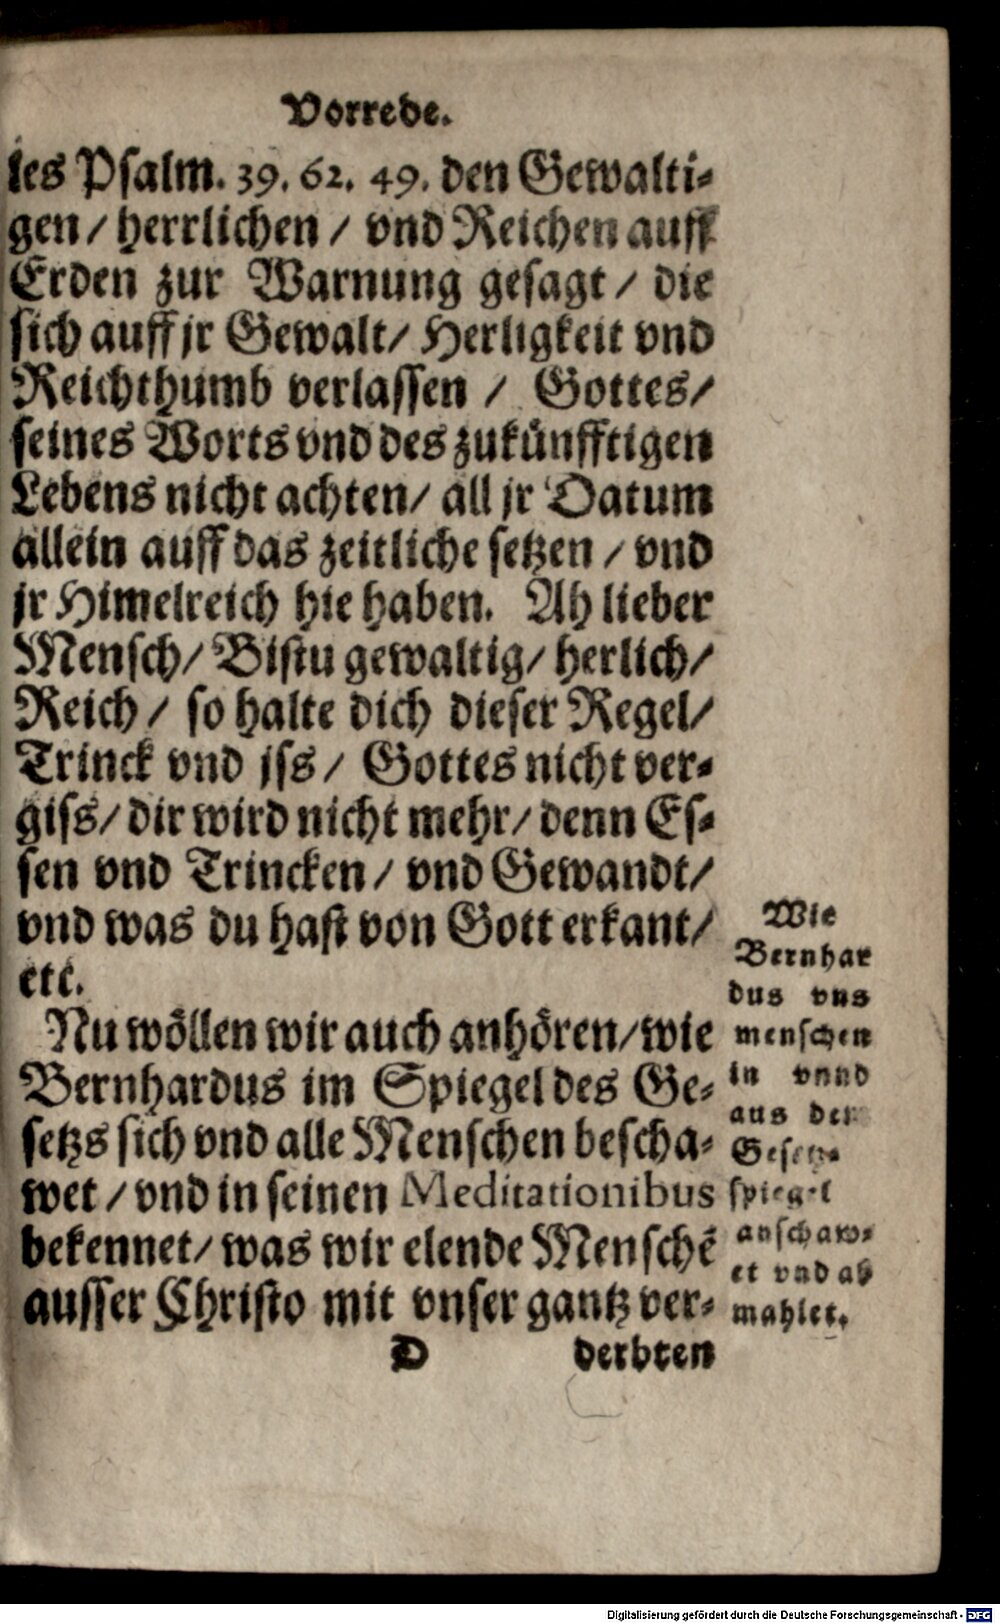 Vorrede.
les Psalm. 39. 62. 49. den Gewalti-
gen / herrlichen / vnd Reichen auff
Erden zur Warnung gesagt / die
sich auff jr Gewalt / Herligkeit vnd
Reichthumb verlassen / Gottes /
seines Worts vnd des zukünfftigen
Lebens nicht achten / all jr Datum
allein auff das zeitliche setzen / vnd
jr Himelreich hie haben. Ah lieber
Mensch / Bistu gewaltig / herlich /
Reich / so halte dich dieser Regel /
Trinck vnd jss / Gottes nicht ver-
giss / dir wird nicht mehr / denn Es-
sen vnd Trincken / vnd Gewandt /
vnd was du hast von Gott erkant /
etc.
Nu wöllen wir auch anhören / wie
Bernhardus im Spiegel des Ge-
setzs sich vnd alle Menschen bescha-
wet / vnd in seinen Meditationibus
bekennet / was wir elende Menschẽ
ausser Christo mit vnser gantz ver-
D derbten
Wie
Bernhar
dus vns
menschen
in vnnd
aus dem
Gesetz-
spiegel
anschaw-
et vnd ab
mahlet.
Digitalisierung gefördert durch die Deutsche Forschungsgemeinschaft - DFG